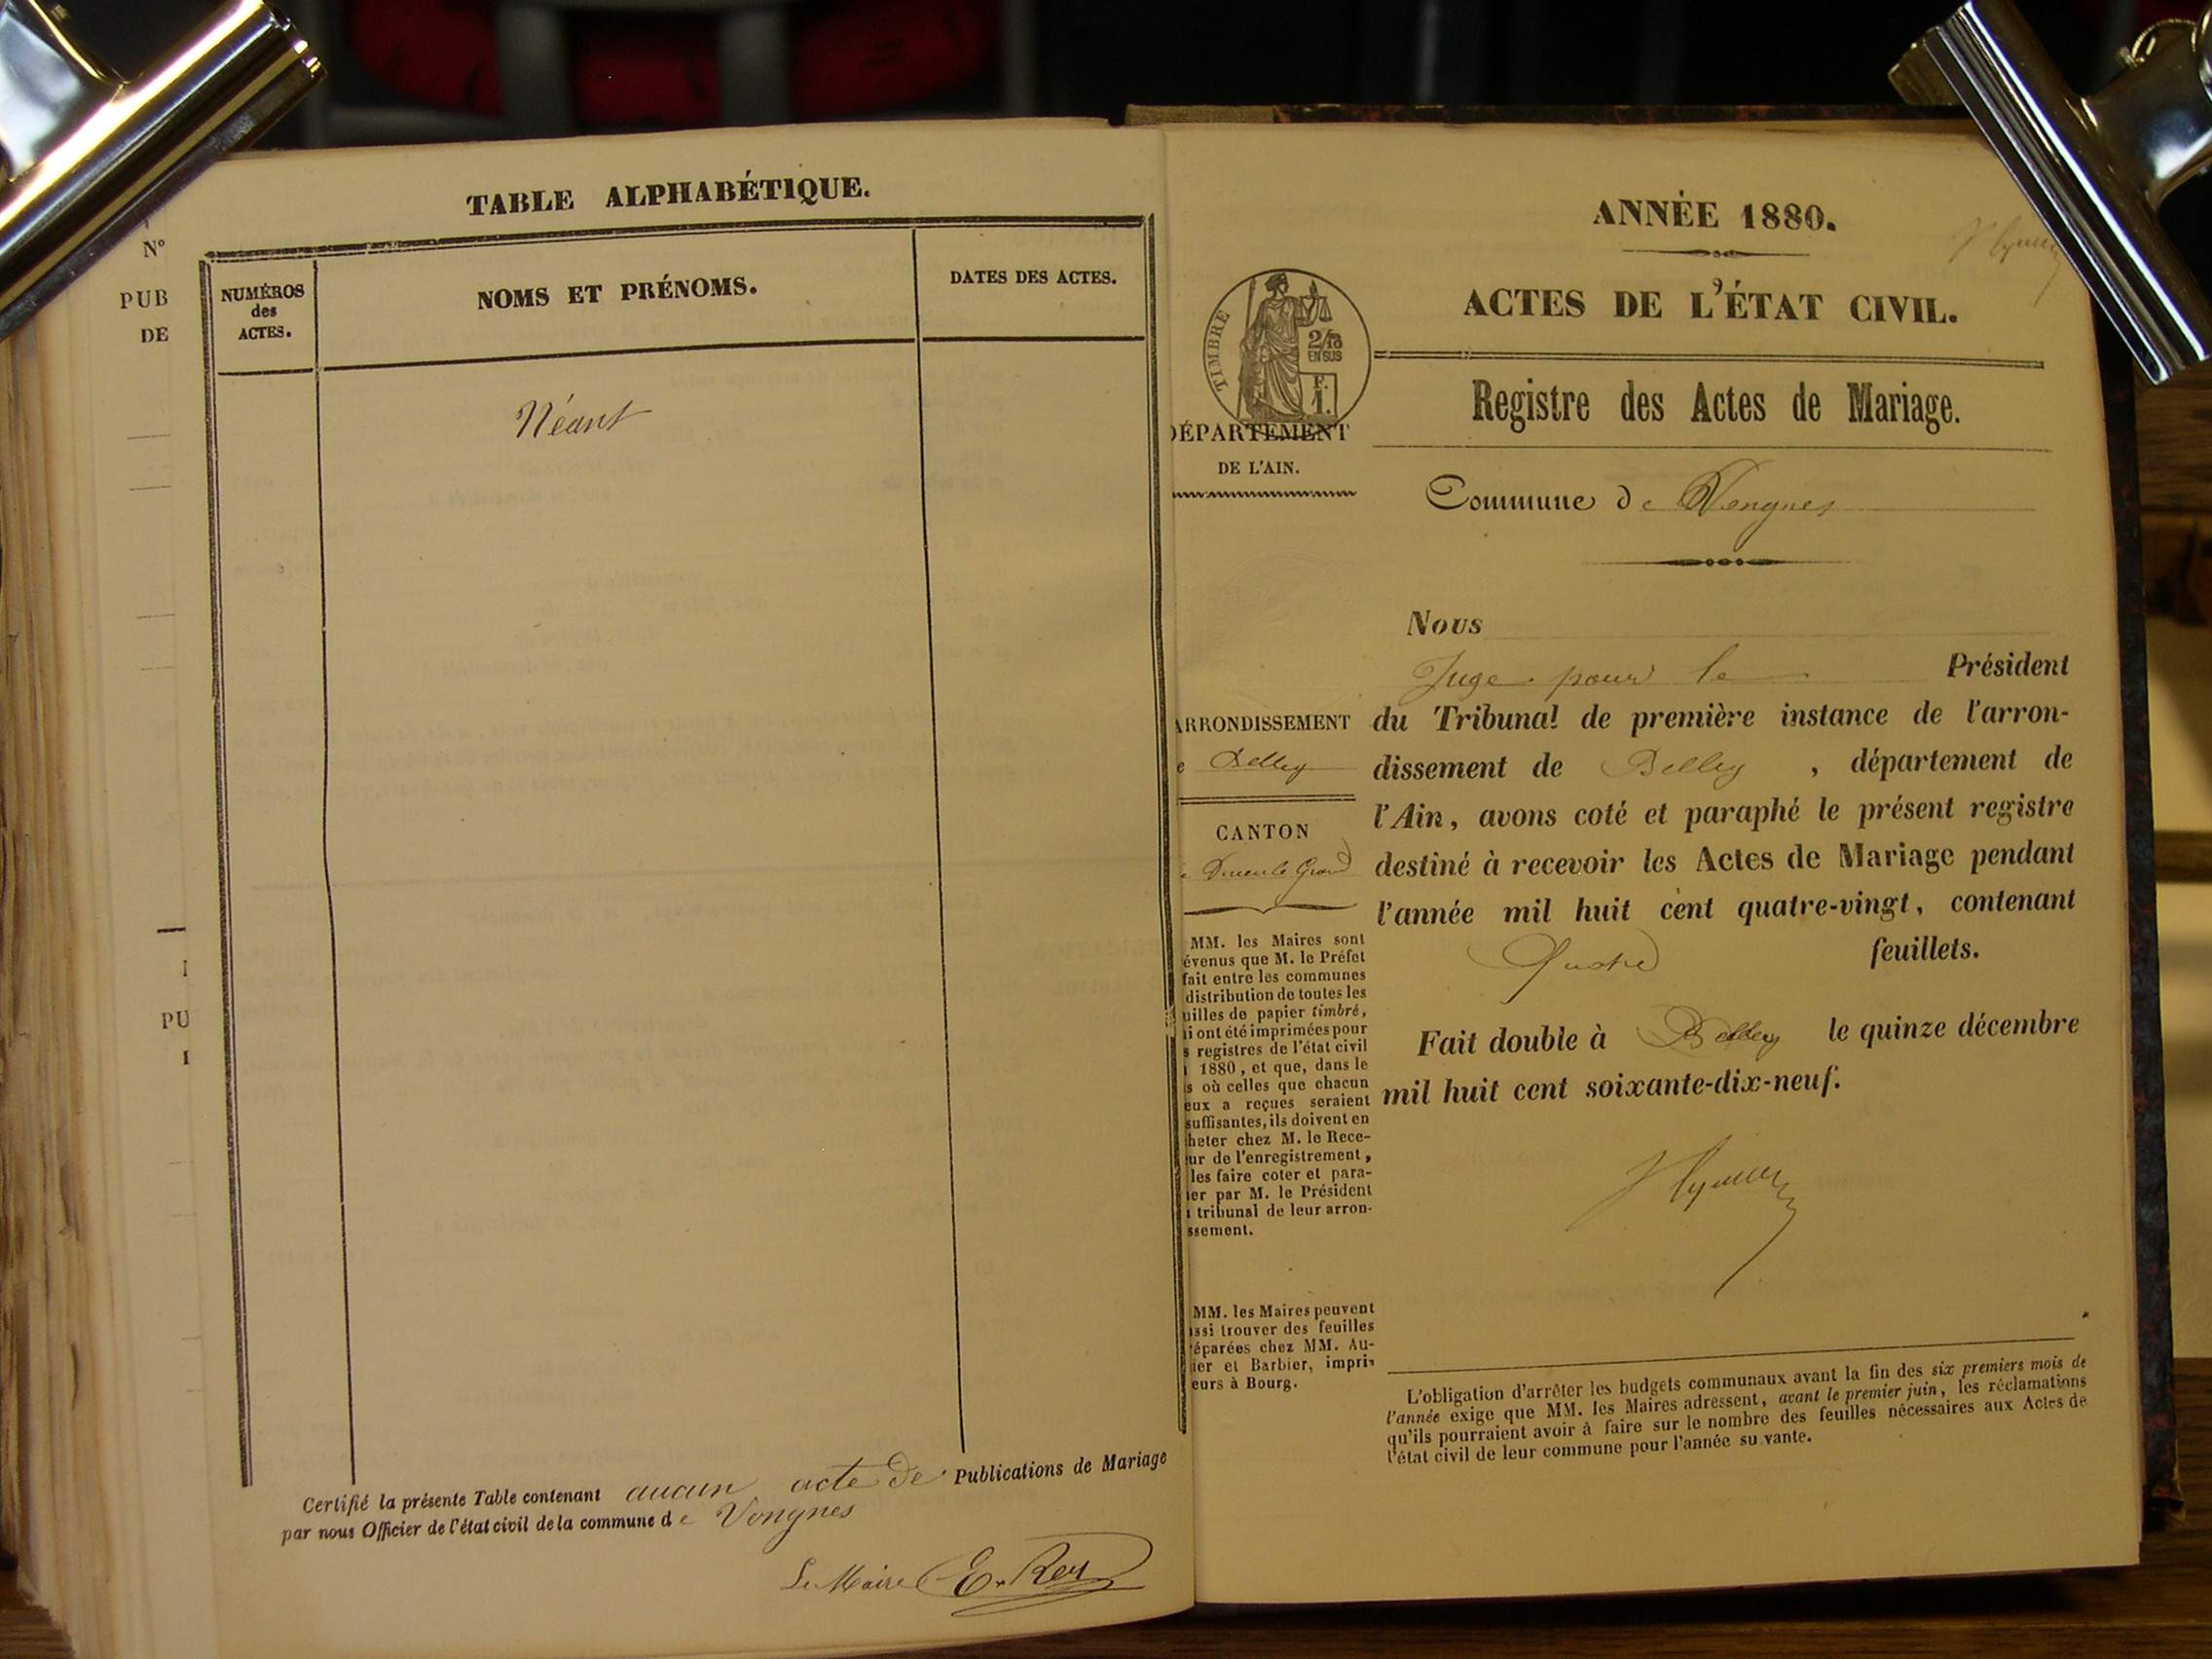 TABLE ALPHABÉTIQUE.
N°
PUB
DE
NUMÉROS
des
ACTES.
NOMS ET PRÉNOMS.
DATES DES ACTES.
Néant
I
PU
I
Certifié la présente Table contenant aucun acte de Publications de Mariage
par nous Officier de l'état civil de la commune de Vongnes
Le Maire E. Rey
ANNÉE 1880.
ACTES DE L'ÉTAT CIVIL.
TIMBRE
2/10
EN SUS
F.
1.
Registre des Actes de Mariage.
DÉPARTEMENT
DE L'AIN.
Commune de Vongnes
Nous
Juge pour le Président
du Tribunal de première instance de l'arron-
dissement de Belley, département de
l'Ain, avons coté et paraphé le présent registre
destiné à recevoir les Actes de Mariage pendant
l'année mil huit cent quatre-vingt, contenant
Quatre feuillets.
Fait double à Belley le quinze décembre
mil huit cent soixante-dix-neuf.
ARRONDISSEMENT
e Belley
CANTON
MM. les Maires sont
évenus que M. le Préfet
fait entre les communes
distribution de toutes les
uilles de papier timbré,
i ont été imprimées pour
s registres de l'état civil
1880, et que, dans le
s où celles que chacun
eux a reçues seraient
suffisantes, ils doivent en
heter chez M. le Rece-
ur de l'enregistrement,
les faire coter et para-
er par M. le Président
tribunal de leur arron-
ssement.
MM. les Maires peuvent
ssi trouver des feuilles
éparées chez MM. Au-
ier et Barbier, impri-
eurs à Bourg.
L'obligation d'arrêter les budgets communaux avant la fin des six premiers mois de
l'année exige que MM. les Maires adressent, avant le premier juin, les réclamations
qu'ils pourraient avoir à faire sur le nombre des feuilles nécessaires aux Actes de
l'état civil de leur commune pour l'année suivante.